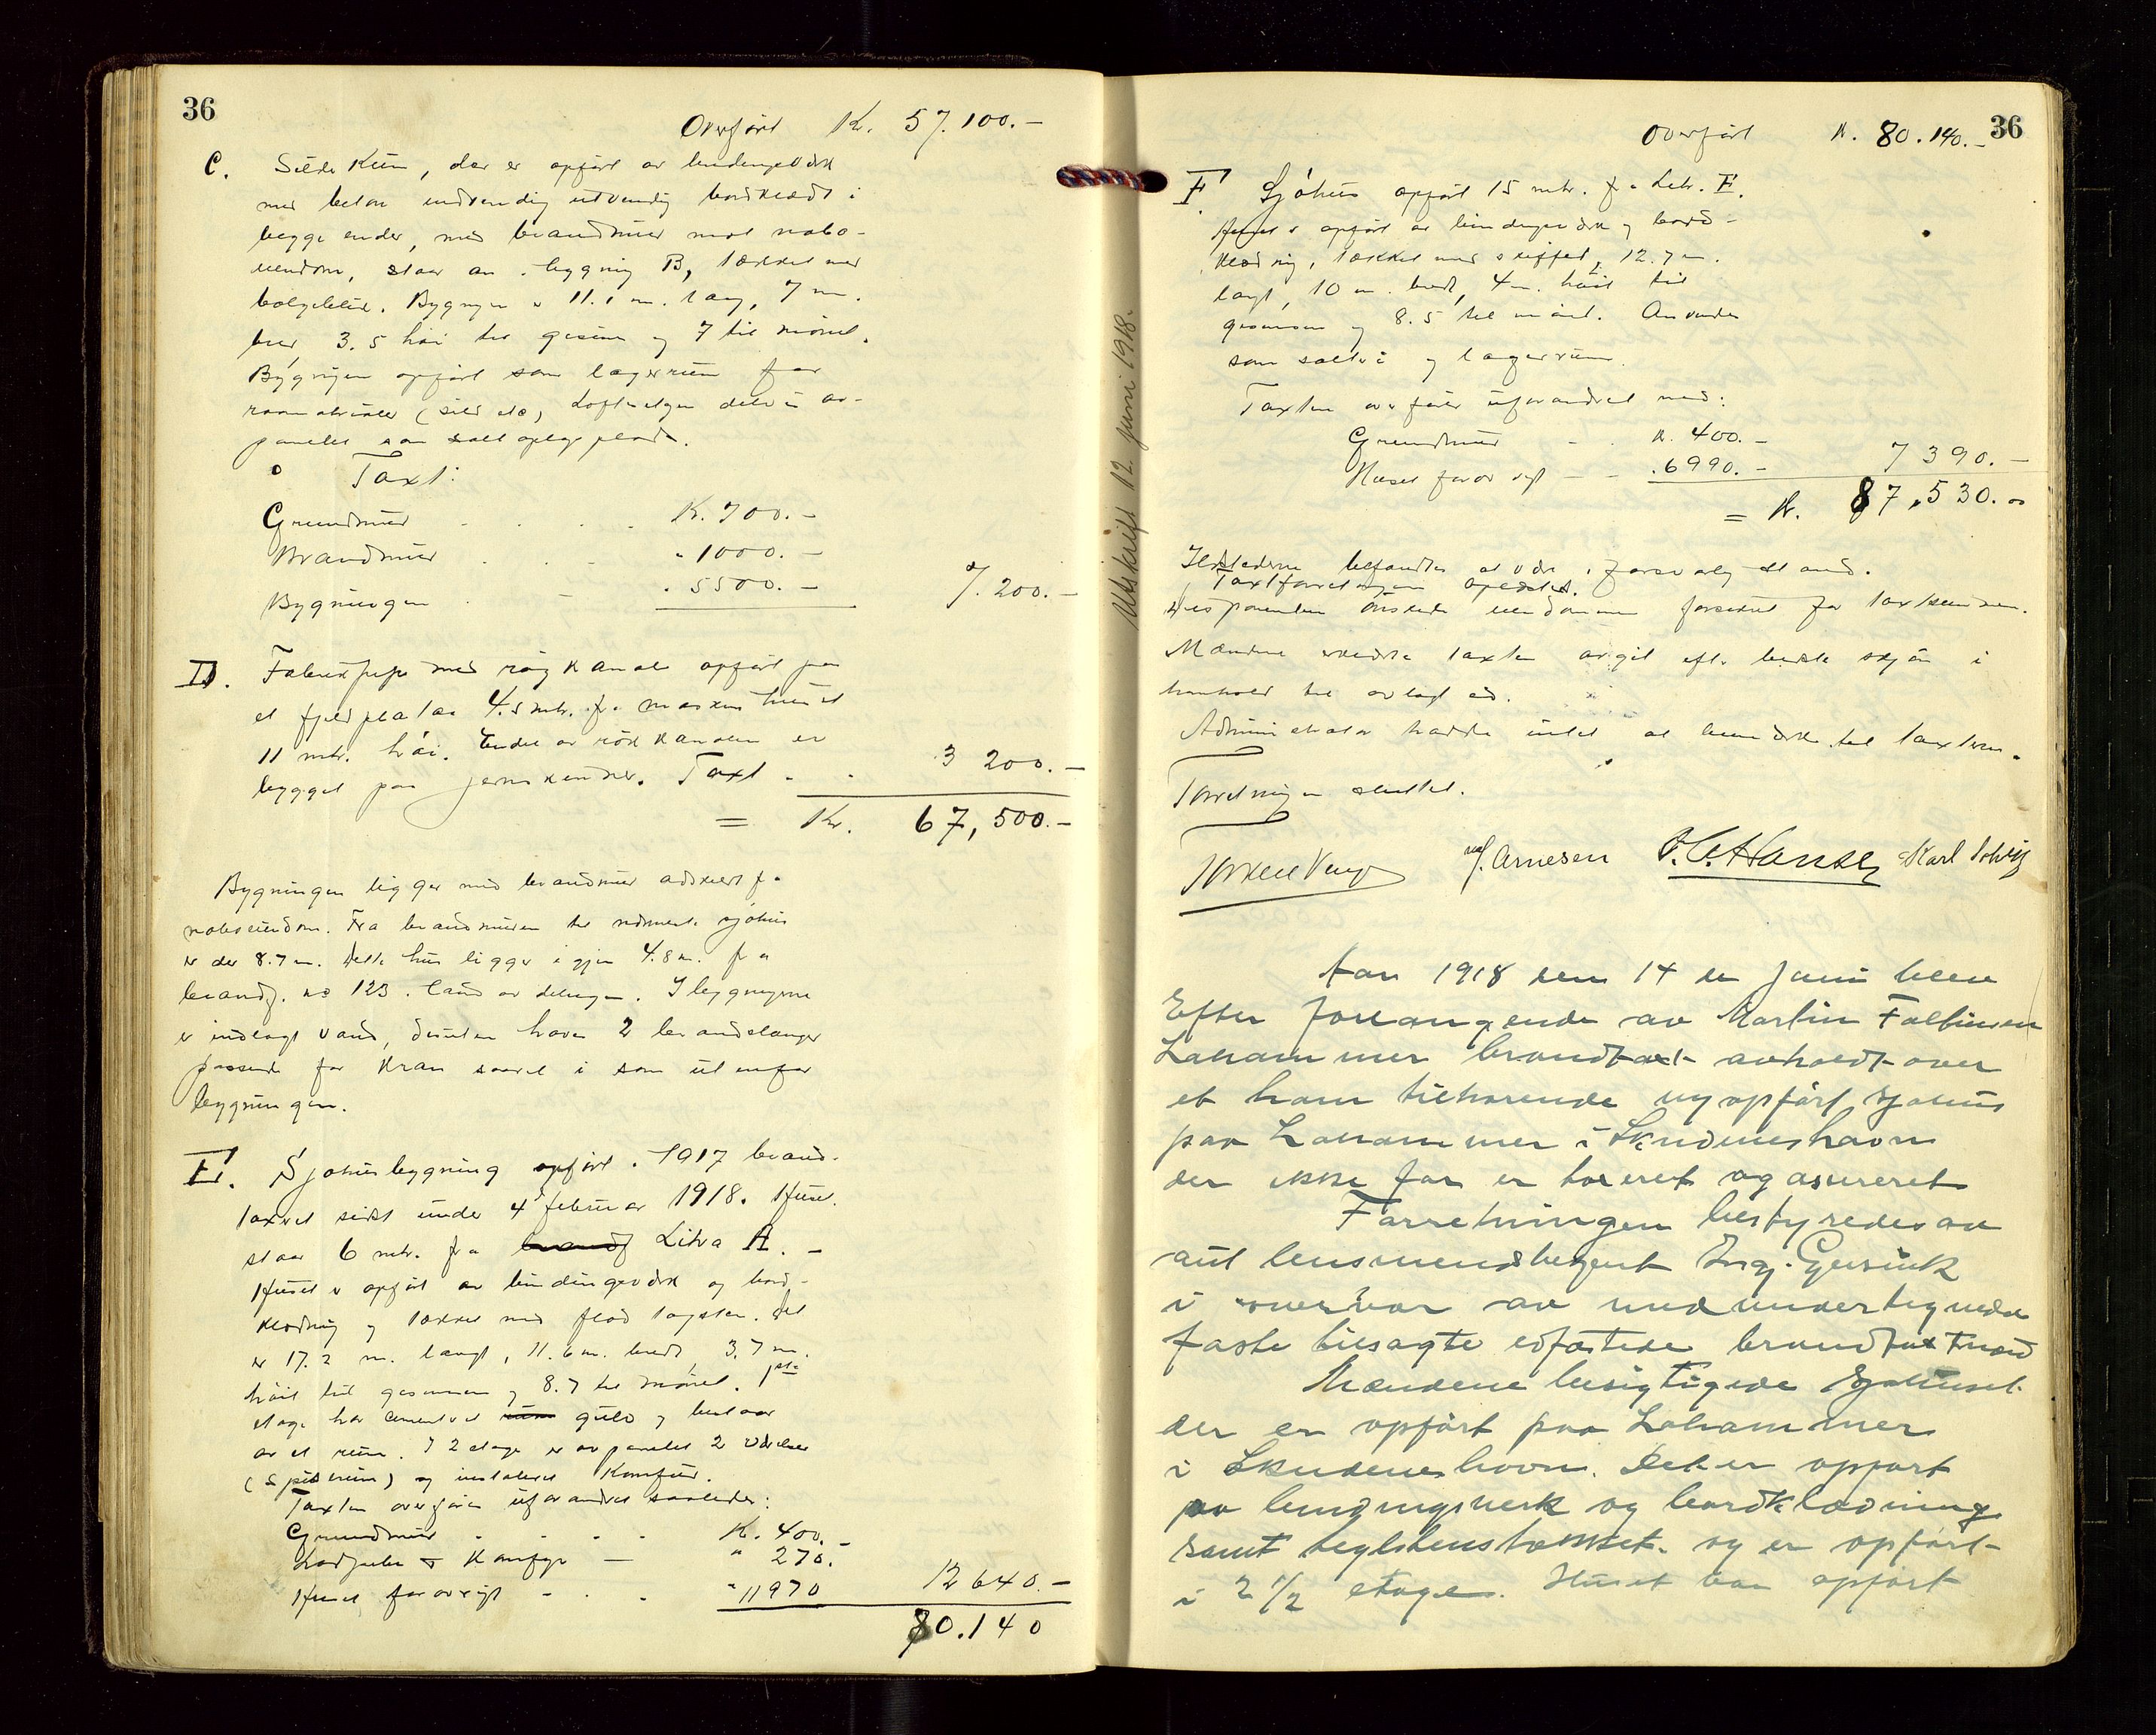 36
Overført Kr. 57.100.-
C. Silde Kum, der er opført av bindingsverk
med beton indvendig utvendig bordklædt i
begge ender, med brandmur mot nabo-
eiendom, staar an. bygning B, tækket med
bølgeblik. Bygngen er 11.1 m. lang, 7 m.
bred 3.5 høi til gesims og 7 til mønet.
Bygngen opført som lagerrum for
raamatrialer (sild etc) Loftsetagen delvis av-
panelet som saltoplagsplads.
Taxt:
Grundmur - . . . K. 700.-
Brandmur . . . " 1000.-
Bygningen . - . 5500.- 7.200.-
D. Fabrikpipe med røgkanal opført paa
et fjeldplataa 4.5 mtr. fra maskinhuset
11 mtr. høi. Endel av røkkanalen er
bygget paa jernskinner. Taxt - . 3 200.-
= Kr. 67,500.-
Bygningen ligger med brandmur adskilt fra
naboeiendom. Fra brandmuren til nærmeste sjøhus
er der 8.7 m. Dette hus ligger igjen 4.8 m. fra
brandf. no 123. I bygningerne
er indlagt vand, desuten haves 2 brandslanger
passende for Kran saavel i som utenfor
bygningen.
E. Sjøhusbygning opført i 1917 brand-
taxert sidst under 4 februar 1918. Huset
staar 6 mtr. fra brandf Litra A. -
Huset er opført av bindingsverk og bord-
klædning og tækket med flad tagsten. Det
er 17.2 m. langt, 11.6 m. bredt, 3.7 m.
høit til gesimsen og 8.7 til mønet. 1ste
etage har cementert rum gulv og bestaar
av et rum. I 2 etage er avpanelet 2 værelser
(Spiserum) og instaleret Komfur.
Taxten overføres uforandret saaledes:
Grundmur - - . . K. 400.-
Lodpibe & Komfyr - " 270.
Huset forøvrigt - . . " 11970 12 640.-
80.140
Utskrift 12. juni 1918.
36
Overført K. 80.140.-
F. Sjøhus opført 15 mtr. fra Litr. E.
Huset er opført av bindingsverk og bord-
klædnig, tækket med skiffer, 12.7 m.
langt, 10 m. bredt, 4 m. høit til
gesimsen og 8.5 til mønet. Anvendes
som salteri og lagerrum.
Taxten overføres uforandret med:
Grundmur - . K. 400.-
Huset forøvrigt - - . 6990.- 7390.-
= K. 87,530.00
Ildstederne befandtes at være i forsvarlig stand.
Taxtforretningen oplæstes.
Disponenten ønskede eiendommen forsikret for taxtsummen.
Mændene erklærte taxten avgit efter bedste skjøn i
henhold til avlagt ed.
Administrator hadde intet at bemerke til taxten.
Forretningen sluttet.
J. Arnesen O. C. Hansen Karl
Aar 1918 den 14 de Juni blev
Efter forlangende av Martin Falbinsen
Lahammer brandtaxt avholdt over
et ham tilhørende nyopført sjøhus
paa Lahammer i Skudeneshavn
der ikke før er taxeret og asureret
Forretningen bestyredes av
aut lensmendsbetjent Ing. Gjersvik
i overvær av medundertegnede
faste tilsagte edfæstede brandtaxtmænd
Mændene besigtigede Sjøhuset
der er opført paa Lahammer
i Skudeneshavn. Det er opført
av bindingsverk og bordklædning
samt teglstenstækket og er opført
i 2 1/2 etage. Huset var opført